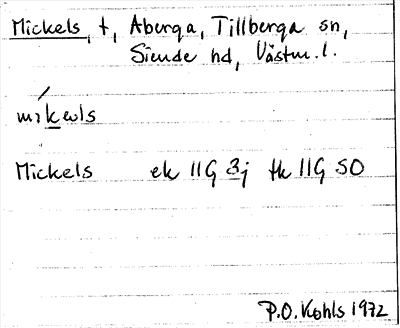 Mickels, t, Aberga, Tillberga sn,
Siende hd, Västm. l.
Mickels ek 11G 3j tk 11G SO
P.O. Kohls 1972